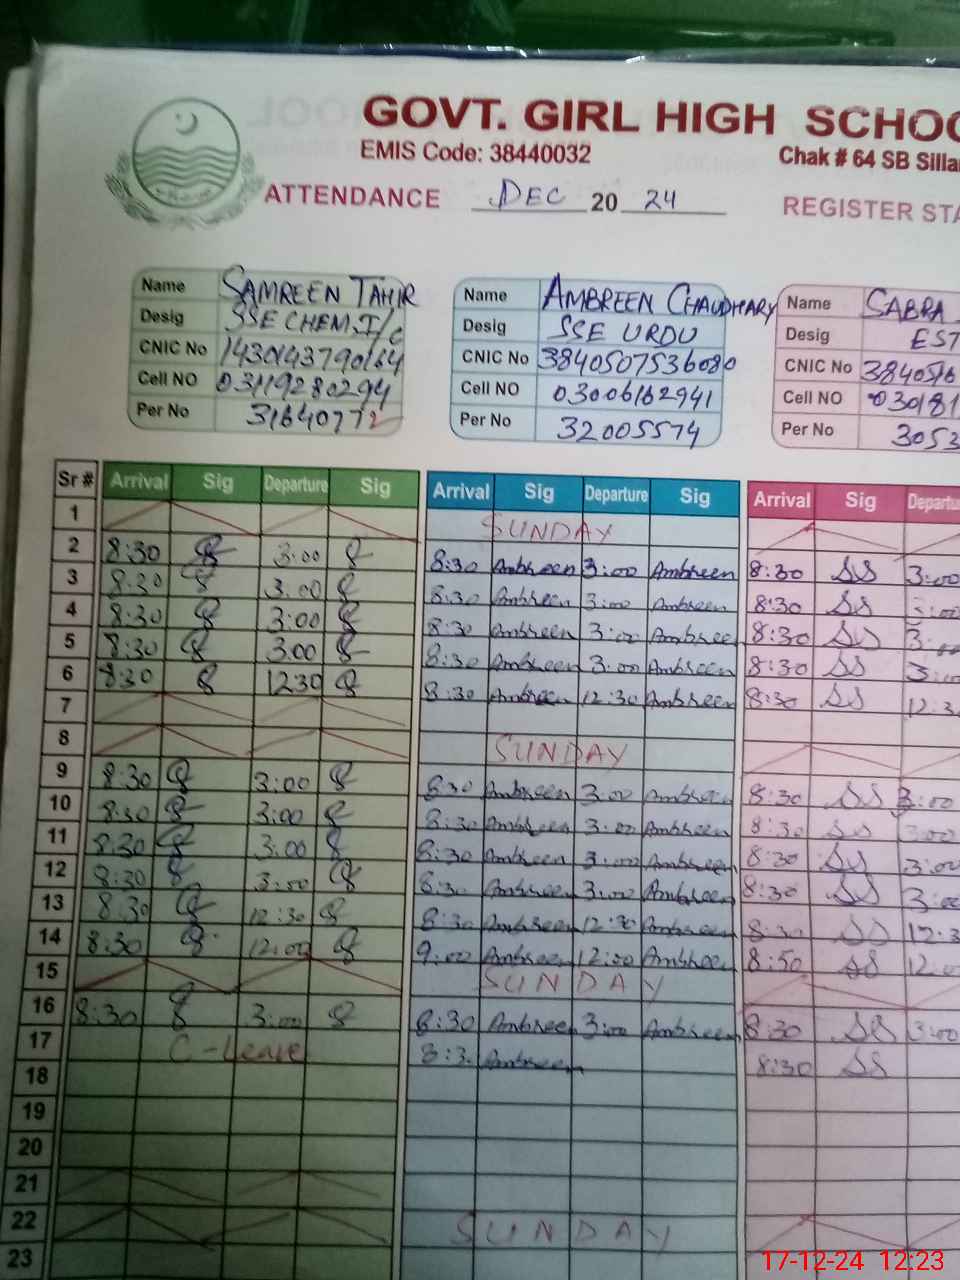 GOVT. GIRL HIGH SCHOO
EMIS Code: 38440032 Chak # 64 SB Silla
ATTENDANCE DEC 20 24 REGISTER STA
Name SAMREEN TAHIR
Desig SSE CHEM.I/c
CNIC No
Cell NO 03119280294
Per No 31640772
Name AMBREEN CHAUDHARY
Desig SSE URDU
CNIC No 3840507536080
Cell NO 03006162941
Per No 32005574
Name SABRA
Desig EST
CNIC No 3840516
Cell NO 030181
Per No 3053
Sr # Arrival Sig Departure Sig Arrival Sig Departure Sig Arrival Sig Departur
1 SUNDAY
2 8:30 3:00 8:30 Ambreen 3:00 Ambreen 8:30 SS 3:00
3 8:30 3:00 8:30 Ambreen 3:00 Ambreen 8:30 SS 3:00
4 8:30 3:00 8:30 Ambreen 3:00 Ambreen 8:30 SS 3:00
5 8:30 3:00 8:30 Ambreen 3:00 Ambreen 8:30 SS 3:00
6 8:30 1230 8:30 Ambreen 12:30 Ambreen 8:30 SS 12:3
7
8 SUNDAY
9 8:30 3:00 8:30 Ambreen 3:00 Ambreen 8:30 SS 3:00
10 8:30 3:00 8:30 Ambreen 3:00 Ambreen 8:30 SS 3:00
11 8:30 3:00 8:30 Ambreen 3:00 Ambreen 8:30 SS 3:00
12 8:30 3:00 8:30 Ambreen 3:00 Ambreen 8:30 SS 3:00
13 8:30 12:30 8:30 Ambreen 12:30 Ambreen 8:30 SS 12:3
14 8:30 12:00 9:00 Ambreen 12:00 Ambreen 8:50 SS 12:0
15 SUNDAY
16 8:30 3:00 8:30 Ambreen 3:00 Ambreen 8:30 SS 3:00
17 C-Leave 8:3 Ambreen 8:30 SS
18
19
20
21
22 SUNDAY
23
17-12-24 12:23